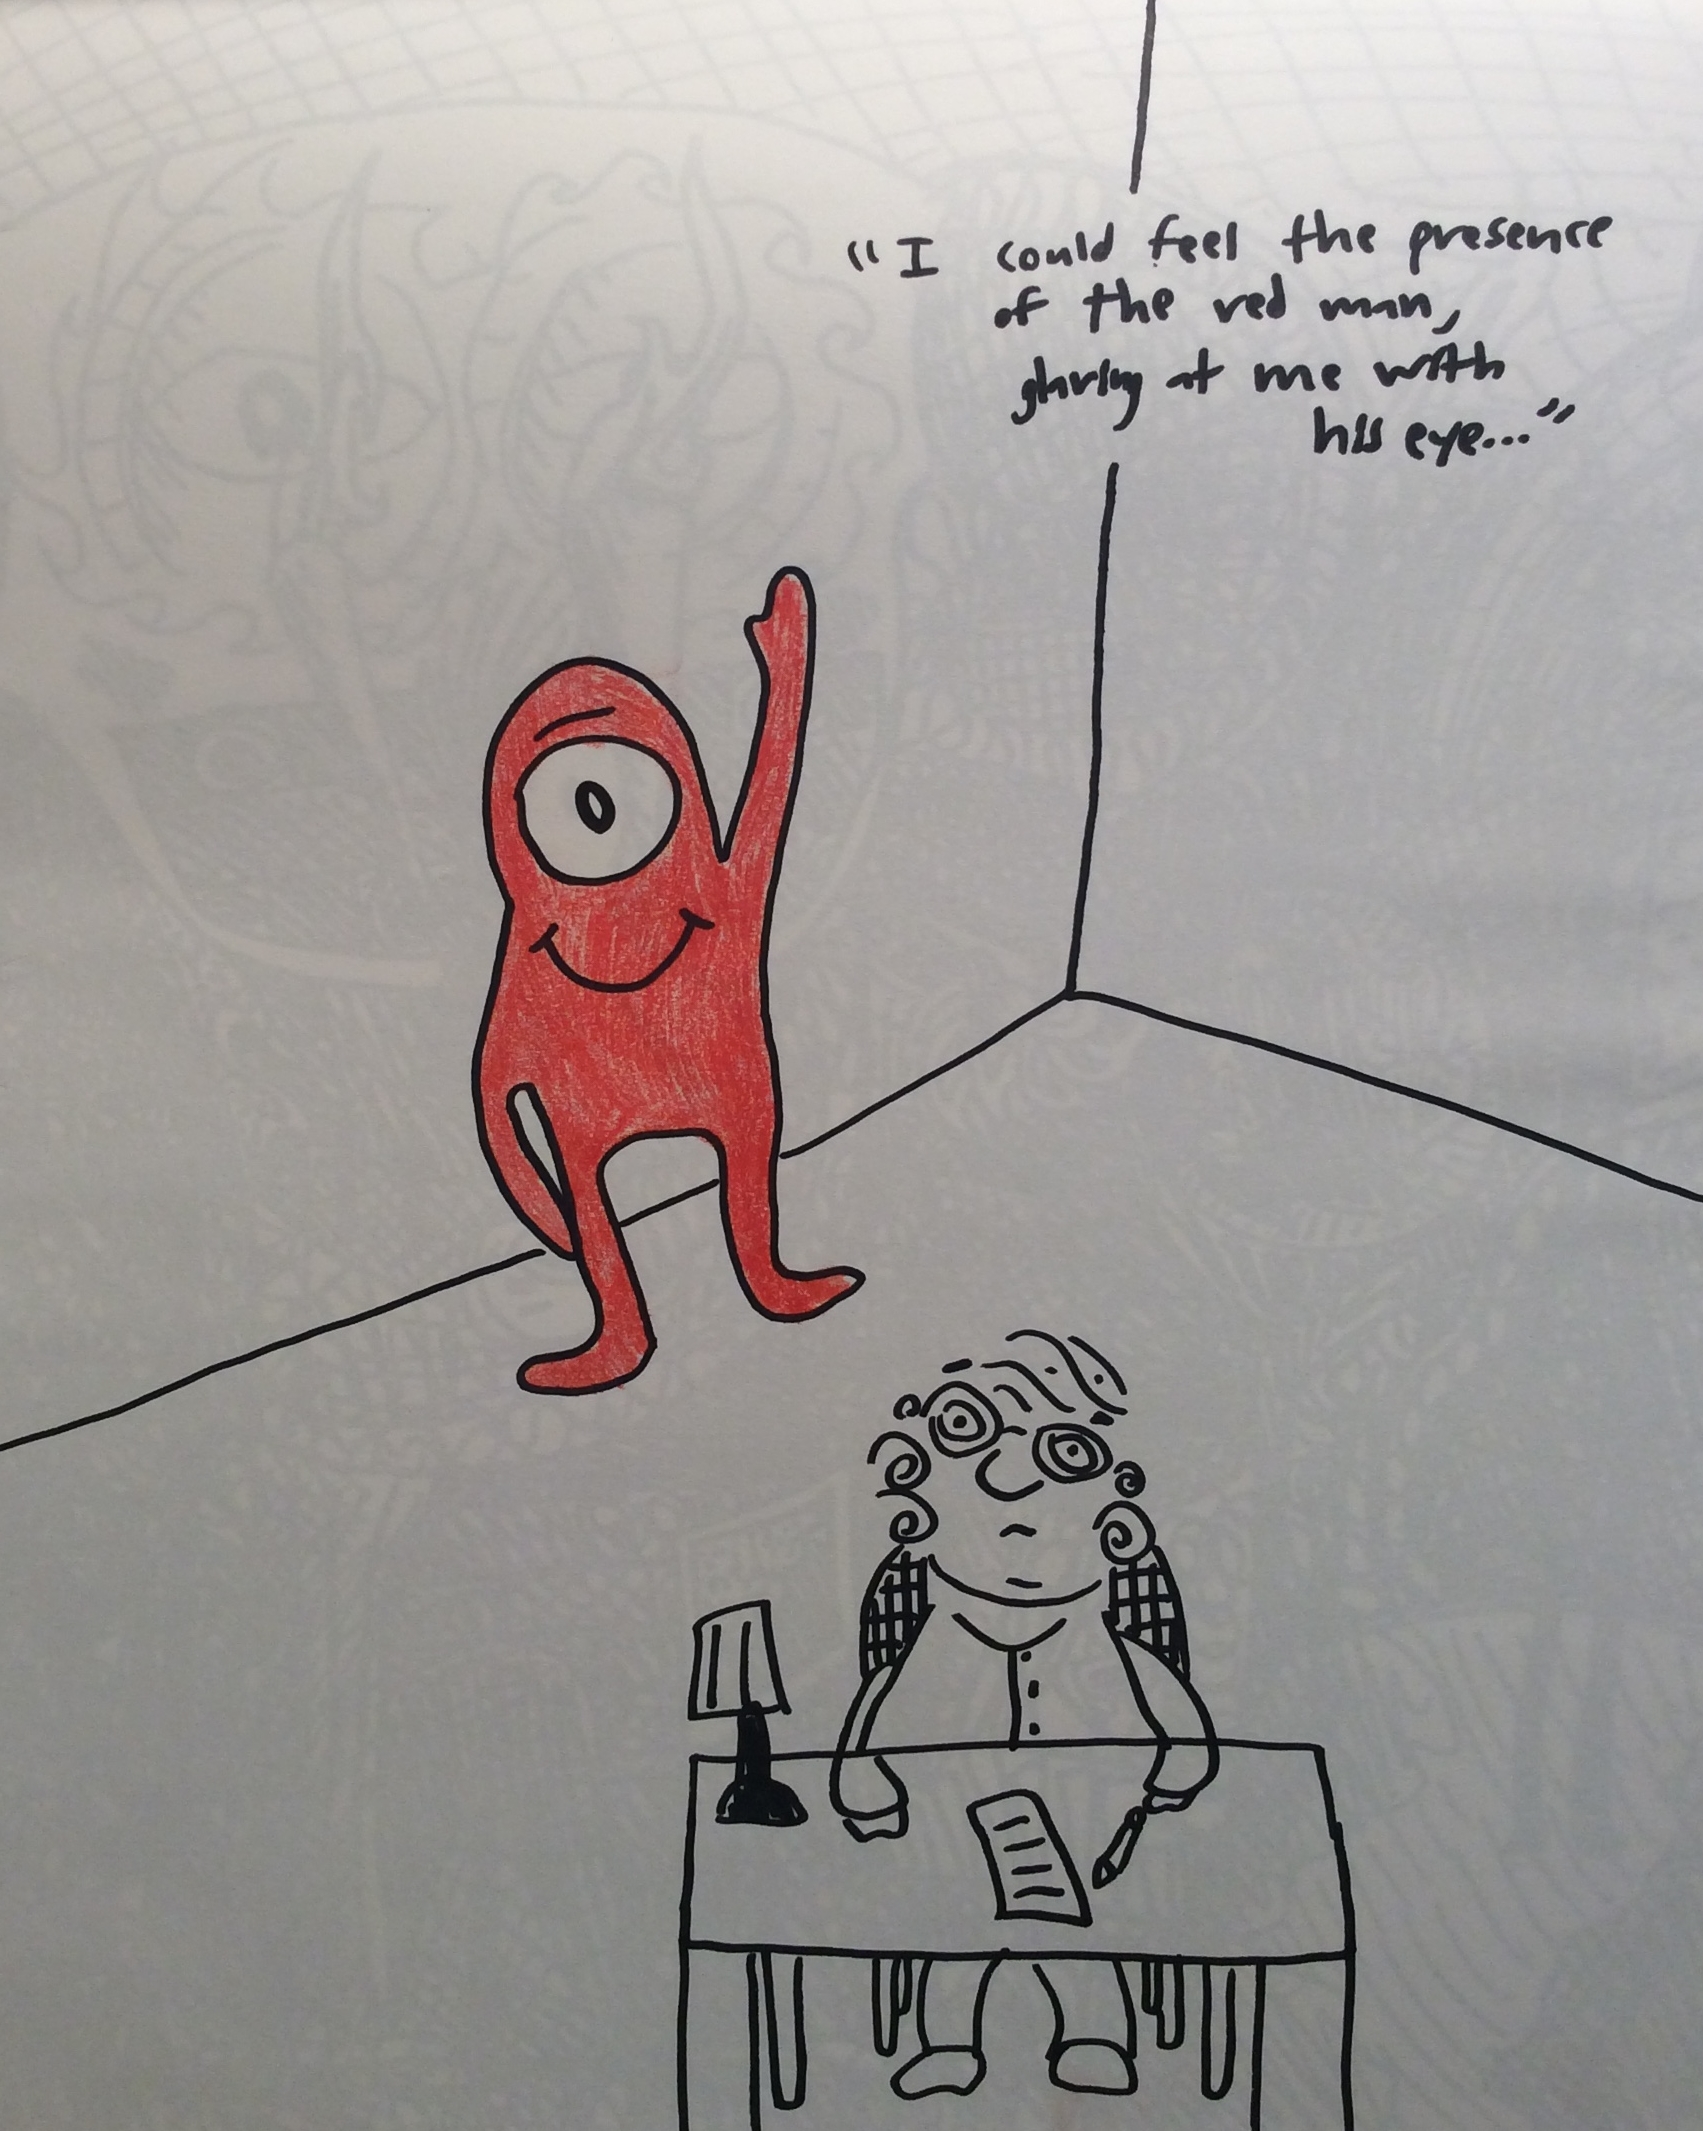 "I could feel the presence
of the red man,
glaring at me with
his eye..."